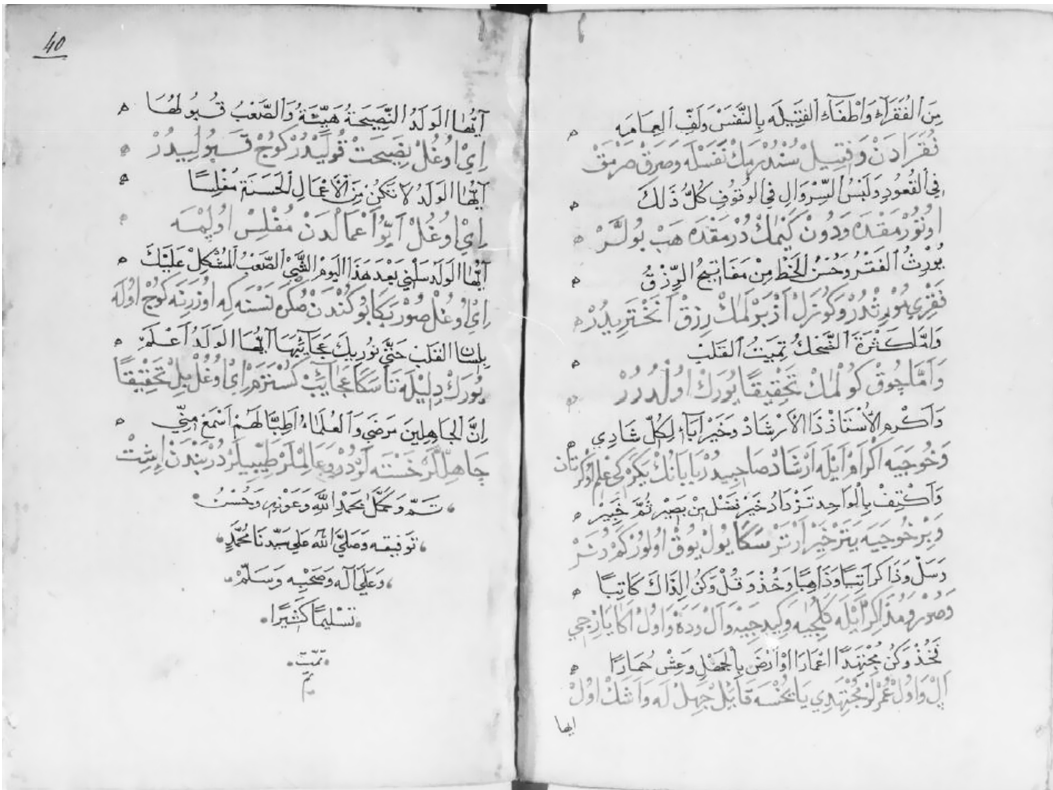 مِنَ الْفُقَرَآءِ وَاطْفَآءِ الْفَتِيلَه بِالنَّفَسْ وَلَفِّ الْعِمَامَه
فُقَرَادَنْ وَفِتِيلْ سُنْدُرْمَكْ نَفَسْلَه وَصَرِقْ صَرْمَقْ
فِي الْقُعُودِ وَلَبْسُ السِّرْوَالِ فِي الْوُقُوفِ كُلُّ ذٰلِكَ
اوُتُورْمَقْدَه وَدُونْ كَيْمَكْ دُرْمَقْدَه هَبْ بُولَرْ
يُورِثُ الْفَقْرَ وَحُسْنُ الْخَطِّ مِنْ مَفَاتِيحُ الرِّزْقُ
فَقْرِي وَكُوزَلْ رِزْقْ
وَامَّا كَثْرَةَ الضِّحْكُ تُمِيتُ الْقَلْبْ
وَامَّا چُوقْ كُولْمَكْ تَحْقِيقًا يُورَكْ اولْدُرُرْ
وَاَكْرِمِ الْأُسْتَاذْ ذَا الْأَرْشَادْ وَخَيْرَ آبَاءٍ لِكُلِّ شَادِي
وَخُوجَيِه اِكْرَامْ اَيْلَه اَرْشَادْ صَاحِبِيدُرْ
وَاَكْتِفْ بِالْوَاحِدِ تَزْدَادُ خَيْرْ فَضْل بَصِيرْ ثُمَّ خَبِيرْ
وَبِرْ خُوجَيِه يَتَرْ خَيْرْ اَرْتَرْ سَكَا يُولْ يُوقْ اُولُورْ
وَسَلْ وَذَاكِرْ آتِيًا وَذَاهِبًا وَخُذْ وَقُلْ وَكُنْ لِذَاكَ كَاتِبًا
وَصُورْ وَمُذَاكِرْ اَيْلَه كَلِجِيَه وَكِيدِجِيَه وَآلْ وَدَه وَاوُلْ اَكَا يَازِجِي
فَخُذْ وَكُنْ مُجْتَهِدًا اَوْ اَرْضَ بِالْجَهْلِ وَعِشْ حُمَارًا
آلْ وَاوُلْ قَائِلْ جَهِلْ لَه وَاَشَكْ اوُلْ
ايها
40
اَيُّهَا الْوَلَدُ النَّصِيحَةُ هَيِّنَةُ وَالصَّعْبُ قُبُولُهَا
اِيْ اوُغُلْ نَصِيحَتْ قُولَيْدُرْ كُوجْ قَبُولِيدُرْ
اَيُّهَا الْوَلَدُ لَا تَكُنْ مِنَ الْأَعْمَالِ الْحَسَنَةِ مُفْلِسًا
اِيْ اوُغُلْ اَيُو اَعْمَالْدَنْ مُفْلِسْ اوُلِمَه
اَيُّهَا الْوَلَدْ سَلْنِي بَعْدَ هٰذَا الْيَوْمِ الشَّيْ الصَّعْبِ الْمُشْكِلْ عَلَيْكَ
اِيْ اوُغُلْ صُورْ بَكَا بُو كُنْدَنْ صُكْرَه نَسْنَه كِه اوُزَرِنَه كُوجْ اوُلَه
بِلِسَانِ الْقَلْبْ حَتّٰى نُورِيكَ عَجَائِبَهَا اَيُّهَا الْوَلَدُ اَعْلَمْ
يُورَكْ دِلِيلَه تَا سَكَا عَجَائِبْ كُسْتَرَمْ اِيْ اوُغُلْ بِيلْ تَحْقِيقًا
اِنَّ الْجَاهِلِينَ مَرْضٰى وَالْعُلَمَاءُ اَطِبَّا لَهُمْ اَسْمِعْ مِنِّي
جَاهِلْلَرْ خَسْتَه لَرْدُرْ وَعَالِمْلَرْ طَبِيبْلَرْدُرْ بَنْدَنْ اِشِتْ
تَمَّ وَكَمُلَ بِحَمْدِ اللّٰهِ وَعَوْنِهِ وَحُسْنُ
تَوْفِيقِه وَصَلَّى اللّٰه عَلٰى سَيِّدِنَا مُحَمَّدٍ
وَعَلٰى آلِه وَصَحْبِه وَسَلَّمْ
تَسْلِيمًا كَثِيرًا
تمّت
تمّ